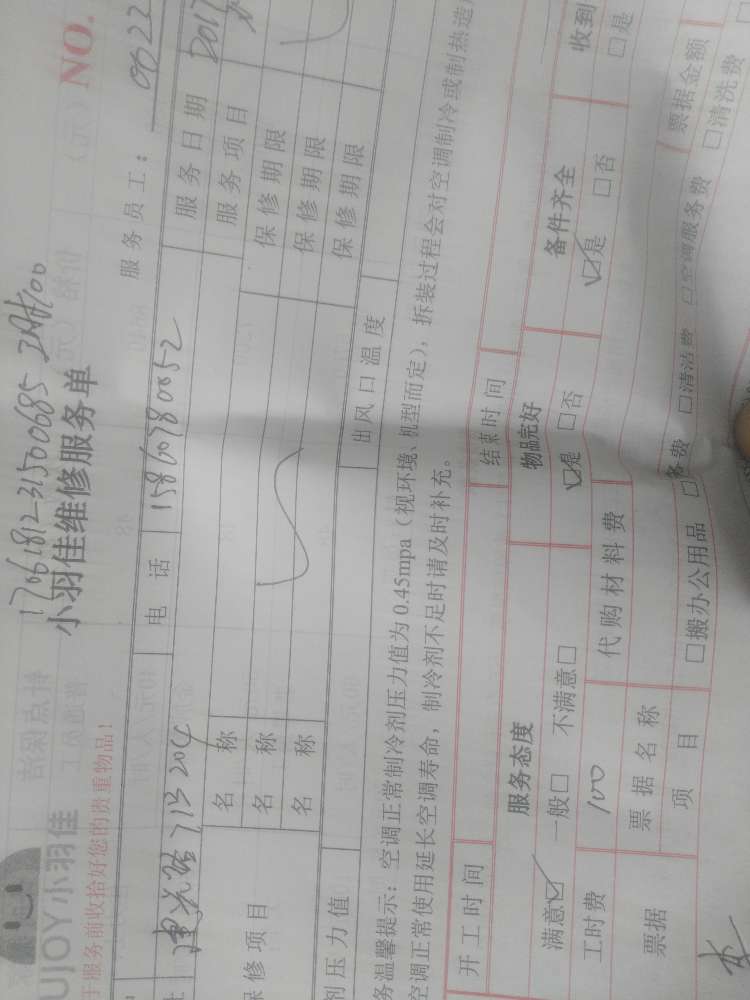 1706181231500685
小羽佳维修服务单
NO.
UJOY小羽佳
于服务前收拾好您的贵重物品!
服务员工: 0622
713 204 电话 15860780052 服务日期 2017
修项目 名称 服务项目
名称 保修期限
名称 保修期限
保修期限
剂压力值 出风口温度
务温馨提示:空调正常制冷剂压力值为0.45mpa(视环境、机型而定),拆装过程会对空调制冷或制热造
空调正常使用延长空调寿命,制冷剂不足时请及时补充。
开工时间 结束时间
服务态度 物品完好 备件齐全 收到
满意☑ 一般□ 不满意□ ☑是 □否 ☑是 □否 □是
工时费 100 代购材料费
票据 票据名称 票据金额
项目 □搬办公用品 □清洁费 □空调服务费 □清洗费